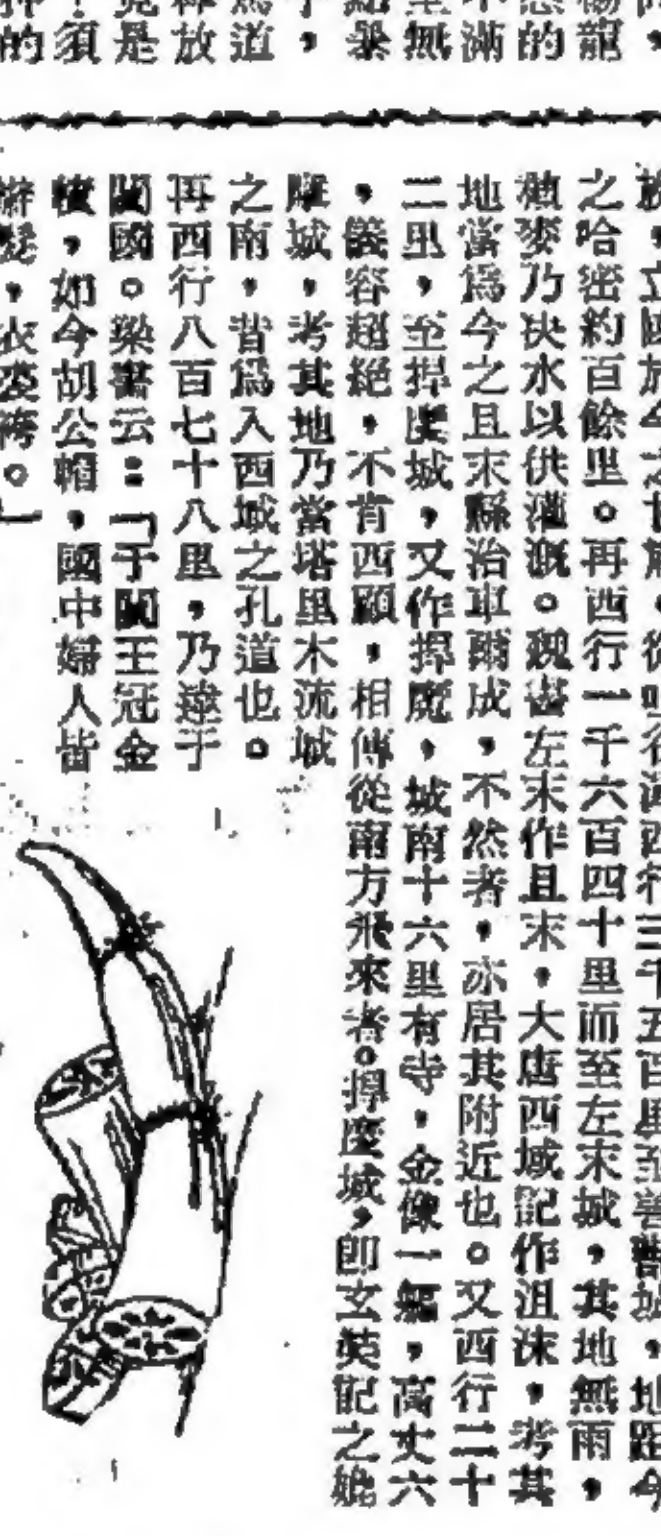 ，
楊龍
的
不滿
里無
暴
，
為道
釋放
竟是
！須
的
之哈密約百餘里。再西行一千六百四十里而至左末城，其地無雨，
種麥乃決水以供灌溉。魏書左末作且末，大唐西域記作沮沫，考其
地當爲今之且末縣治車爾成，不然者，亦居其附近也。又西行二十
二里，至捍𡡉城，又作捍麼，城南十六里有寺，金像一軀，高丈六
，儀容超絕，不肯西顧，相傳從南方飛來者。捍麼城，即玄奘記之媲
摩城，考其地乃當塔里木流域
之南，昔爲入西域之孔道也。
再西行八百七十八里，乃達于
闐國。梁書云：「于闐王冠金
幘，如今胡公帽，國中婦人皆
辮髮，衣裘袴。」